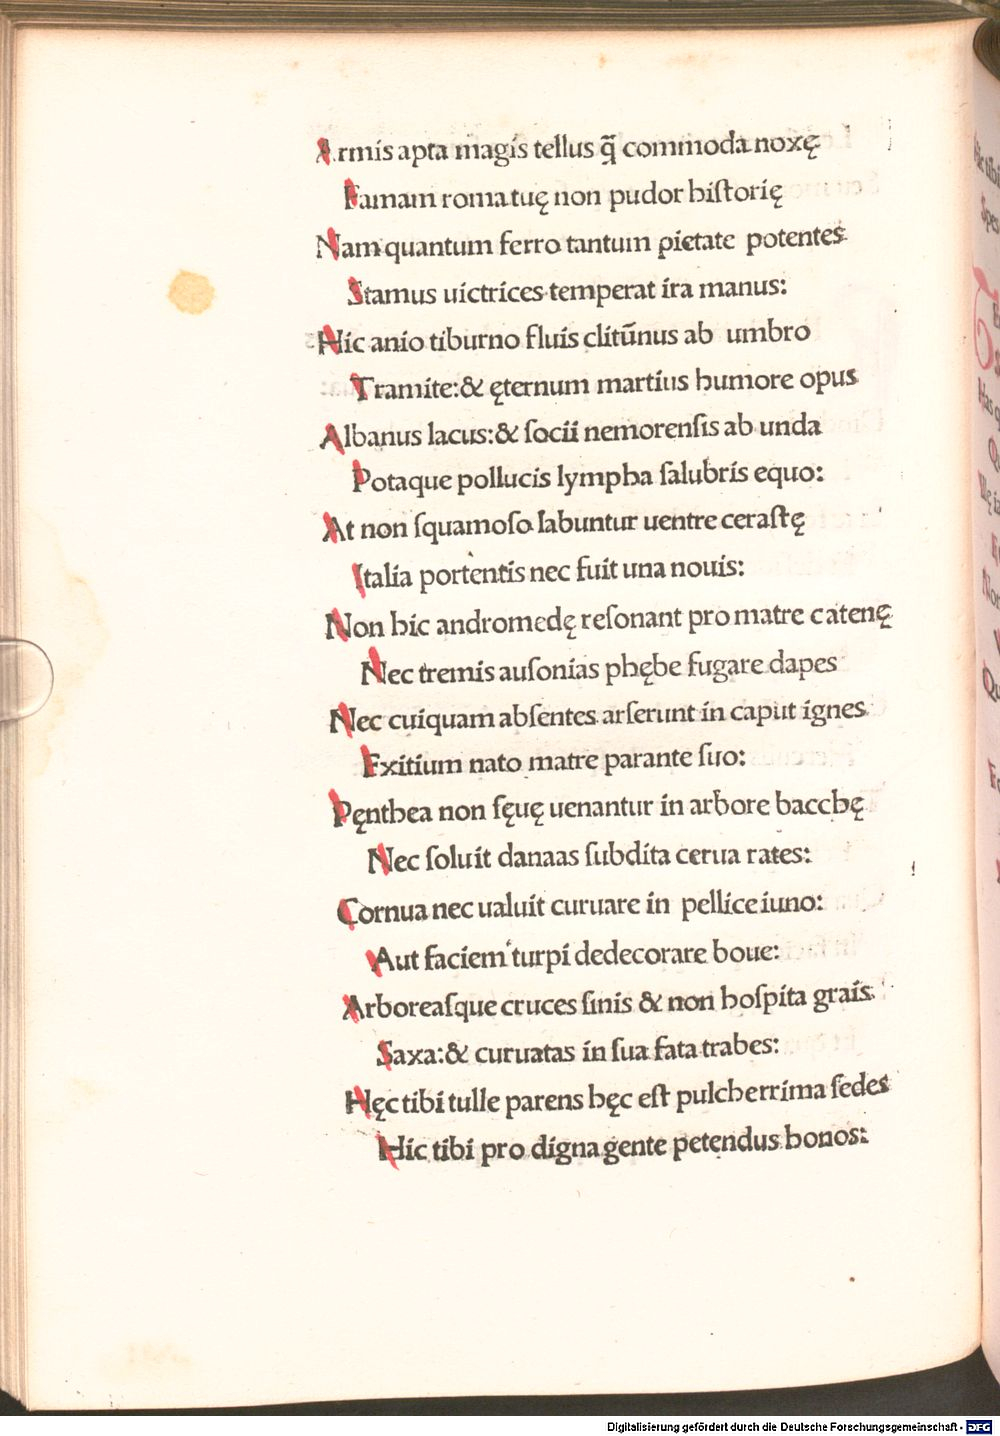 Armis apta magis tellus q̄ commoda noxę
Famam roma tuę non pudor hiſtorię
Nam quantum ferro tantum pietate potentes
Stamus uictrices temperat ira manus:
Hic anio tiburno fluis clitūnus ab umbro
Tramite:& ęternum martius humore opus
Albanus lacus:& ſocii nemorenſis ab unda
Potaque pollucis lympha ſalubris equo:
At non ſquamoſo labuntur uentre ceraſtę
Italia portentis nec fuit una nouis:
Non hic andromedę reſonant pro matre catenę
Nec tremis auſonias phębe fugare dapes
Nec cuiquam abſentes arſerunt in caput ignes
Exitium nato matre parante ſuo:
Pęnthea non ſęuę uenantur in arbore bacchę
Nec ſoluit danaas ſubdita cerua rates:
Cornua nec ualuit curuare in pellice iuno:
Aut faciem turpi dedecorare boue:
Arboreaſque cruces ſinis & non hoſpita grais
Saxa:& curuatas in ſua fata trabes:
Hęc tibi tulle parens hęc eſt pulcherrima ſedes
Hic tibi pro digna gente petendus honos:
Digitalisierung gefördert durch die Deutsche Forschungsgemeinschaft - DFG